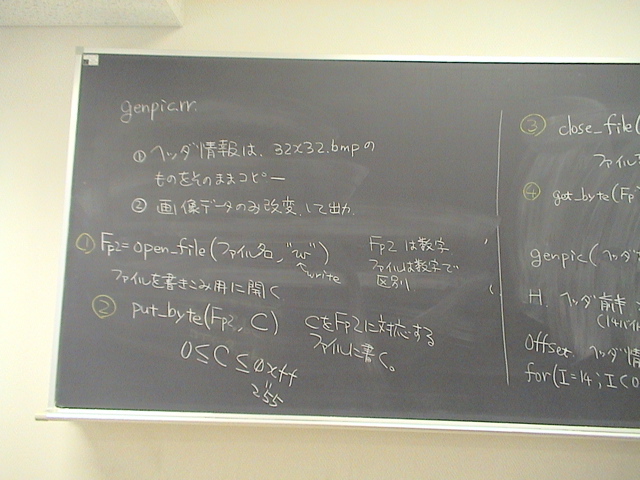 genpic.rr.
① ヘッダ情報は、32x32.bmpの
ものをそのままコピー
② 画像データのみ改変して出力
① Fp2=open_file(ファイル名,"w")
write
ファイルを書きこみ用に開く
Fp2 は数字
ファイルは数字で
区別
② put_byte(Fp2, C)
CをFp2に対応する
ファイルに書く。
0≤C≤0xff
255
③ close_file(
ファイ
④ get_byte(Fp
genpic(ヘッダ
H. ヘッダ前半
(14バイト
Offset. ヘッダ情
for(I=14;I<O